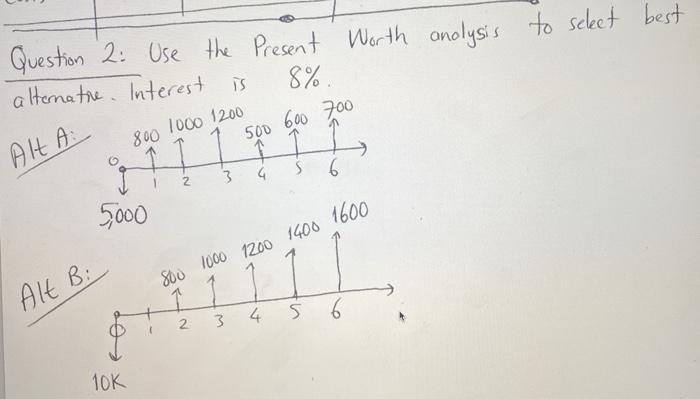 Question 2: Use the Present Worth analysis to select best
alternative. Interest is 8%.
Alt A:
800 1000 1200 500 600 700
0 1 2 3 4 5 6
5,000
Alt B:
800 1000 1200 1400 1600
0 1 2 3 4 5 6
10K